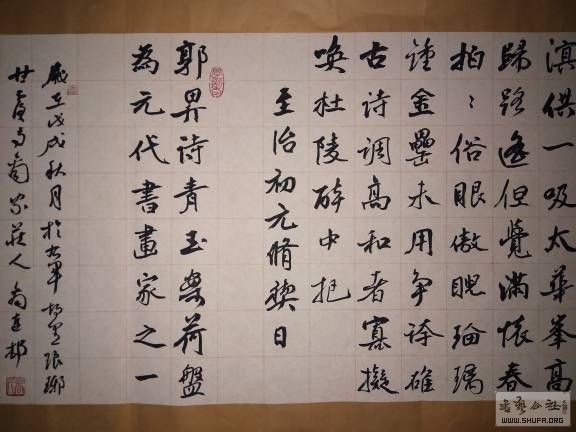 滇供一吸太華峯高
歸路遙但覺滿懷春
拍〻俗眼傲睨璃
鍾金罍未用爭誇雄
古詩調高和者寡擬
喚杜陵醉中把
至治初元脩禊日
郭畀詩青玉荷盤
為元代書畫家之一
歲在戊戌秋月於琅琊
莊人尚
书艺公社
WWW.SHUFA.ORG